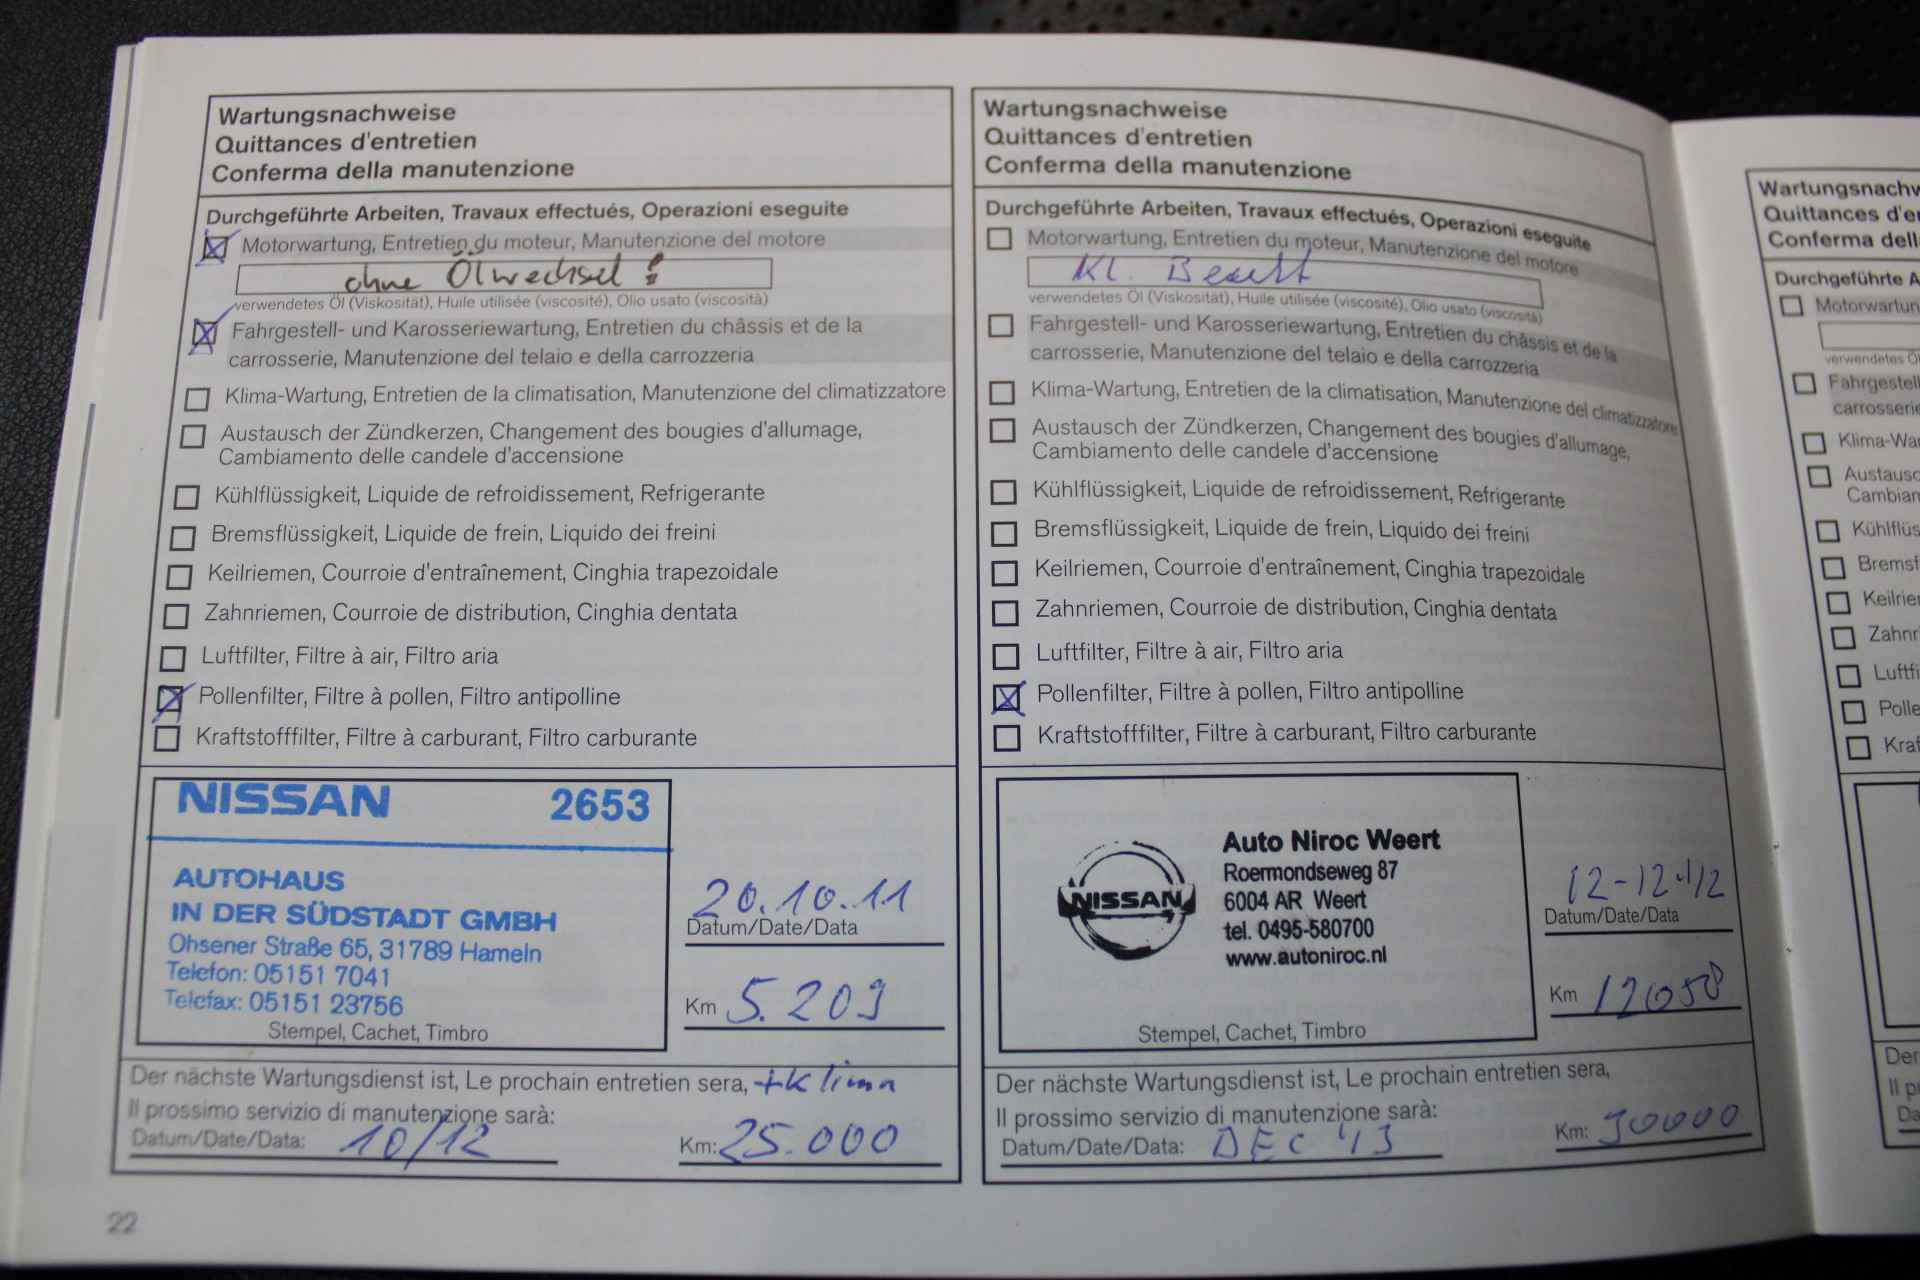 Wartungsnachweise
Quittances d'entretien
Conferma della manutenzione
Durchgeführte Arbeiten, Travaux effectués, Operazioni eseguite
Motorwartung, Entretien du moteur, Manutenzione del motore
ohne Ölwechsel !
verwendetes Öl (Viskosität), Huile utilisée (viscosité), Olio usato (viscosità)
Fahrgestell- und Karosseriewartung, Entretien du châssis et de la
carrosserie, Manutenzione del telaio e della carrozzeria
Klima-Wartung, Entretien de la climatisation, Manutenzione del climatizzatore
Austausch der Zündkerzen, Changement des bougies d'allumage,
Cambiamento delle candele d'accensione
Kühlflüssigkeit, Liquide de refroidissement, Refrigerante
Bremsflüssigkeit, Liquide de frein, Liquido dei freini
Keilriemen, Courroie d'entraînement, Cinghia trapezoidale
Zahnriemen, Courroie de distribution, Cinghia dentata
Luftfilter, Filtre à air, Filtro aria
Pollenfilter, Filtre à pollen, Filtro antipolline
Kraftstofffilter, Filtre à carburant, Filtro carburante
NISSAN 2653
AUTOHAUS
IN DER SÜDSTADT GMBH
Ohsener Straße 65, 31789 Hameln
Telefon: 05151 7041
Telefax: 05151 23756
Stempel, Cachet, Timbro
20.10.11
Datum/Date/Data
Km 5.209
Der nächste Wartungsdienst ist, Le prochain entretien sera, +Klima
Il prossimo servizio di manutenzione sarà:
Datum/Date/Data: 10/12 Km: 25.000
22
Wartungsnachweise
Quittances d'entretien
Conferma della manutenzione
Durchgeführte Arbeiten, Travaux effectués, Operazioni eseguite
Motorwartung, Entretien du moteur, Manutenzione del motore
Kl. Beurt
verwendetes Öl (Viskosität), Huile utilisée (viscosité), Olio usato (viscosità)
Fahrgestell- und Karosseriewartung, Entretien du châssis et de la
carrosserie, Manutenzione del telaio e della carrozzeria
Klima-Wartung, Entretien de la climatisation, Manutenzione del climatizzatore
Austausch der Zündkerzen, Changement des bougies d'allumage,
Cambiamento delle candele d'accensione
Kühlflüssigkeit, Liquide de refroidissement, Refrigerante
Bremsflüssigkeit, Liquide de frein, Liquido dei freini
Keilriemen, Courroie d'entraînement, Cinghia trapezoidale
Zahnriemen, Courroie de distribution, Cinghia dentata
Luftfilter, Filtre à air, Filtro aria
Pollenfilter, Filtre à pollen, Filtro antipolline
Kraftstofffilter, Filtre à carburant, Filtro carburante
NISSAN
Auto Niroc Weert
Roermondseweg 87
6004 AR Weert
tel. 0495-580700
www.autoniroc.nl
Stempel, Cachet, Timbro
12-12-'12
Datum/Date/Data
Km 12058
Der nächste Wartungsdienst ist, Le prochain entretien sera,
Il prossimo servizio di manutenzione sarà:
Datum/Date/Data: DEC '13 Km: 30000
Wartungsnachw
Quittances d'e
Conferma dell
Durchgeführte A
Motorwartun
verwendetes Ö
Fahrgestell
carrosserie
Klima-Wa
Austausc
Cambian
Kühlflüs
Bremsf
Keilrie
Zahnr
Luftfi
Polle
Kraf
Der
Il p
Da